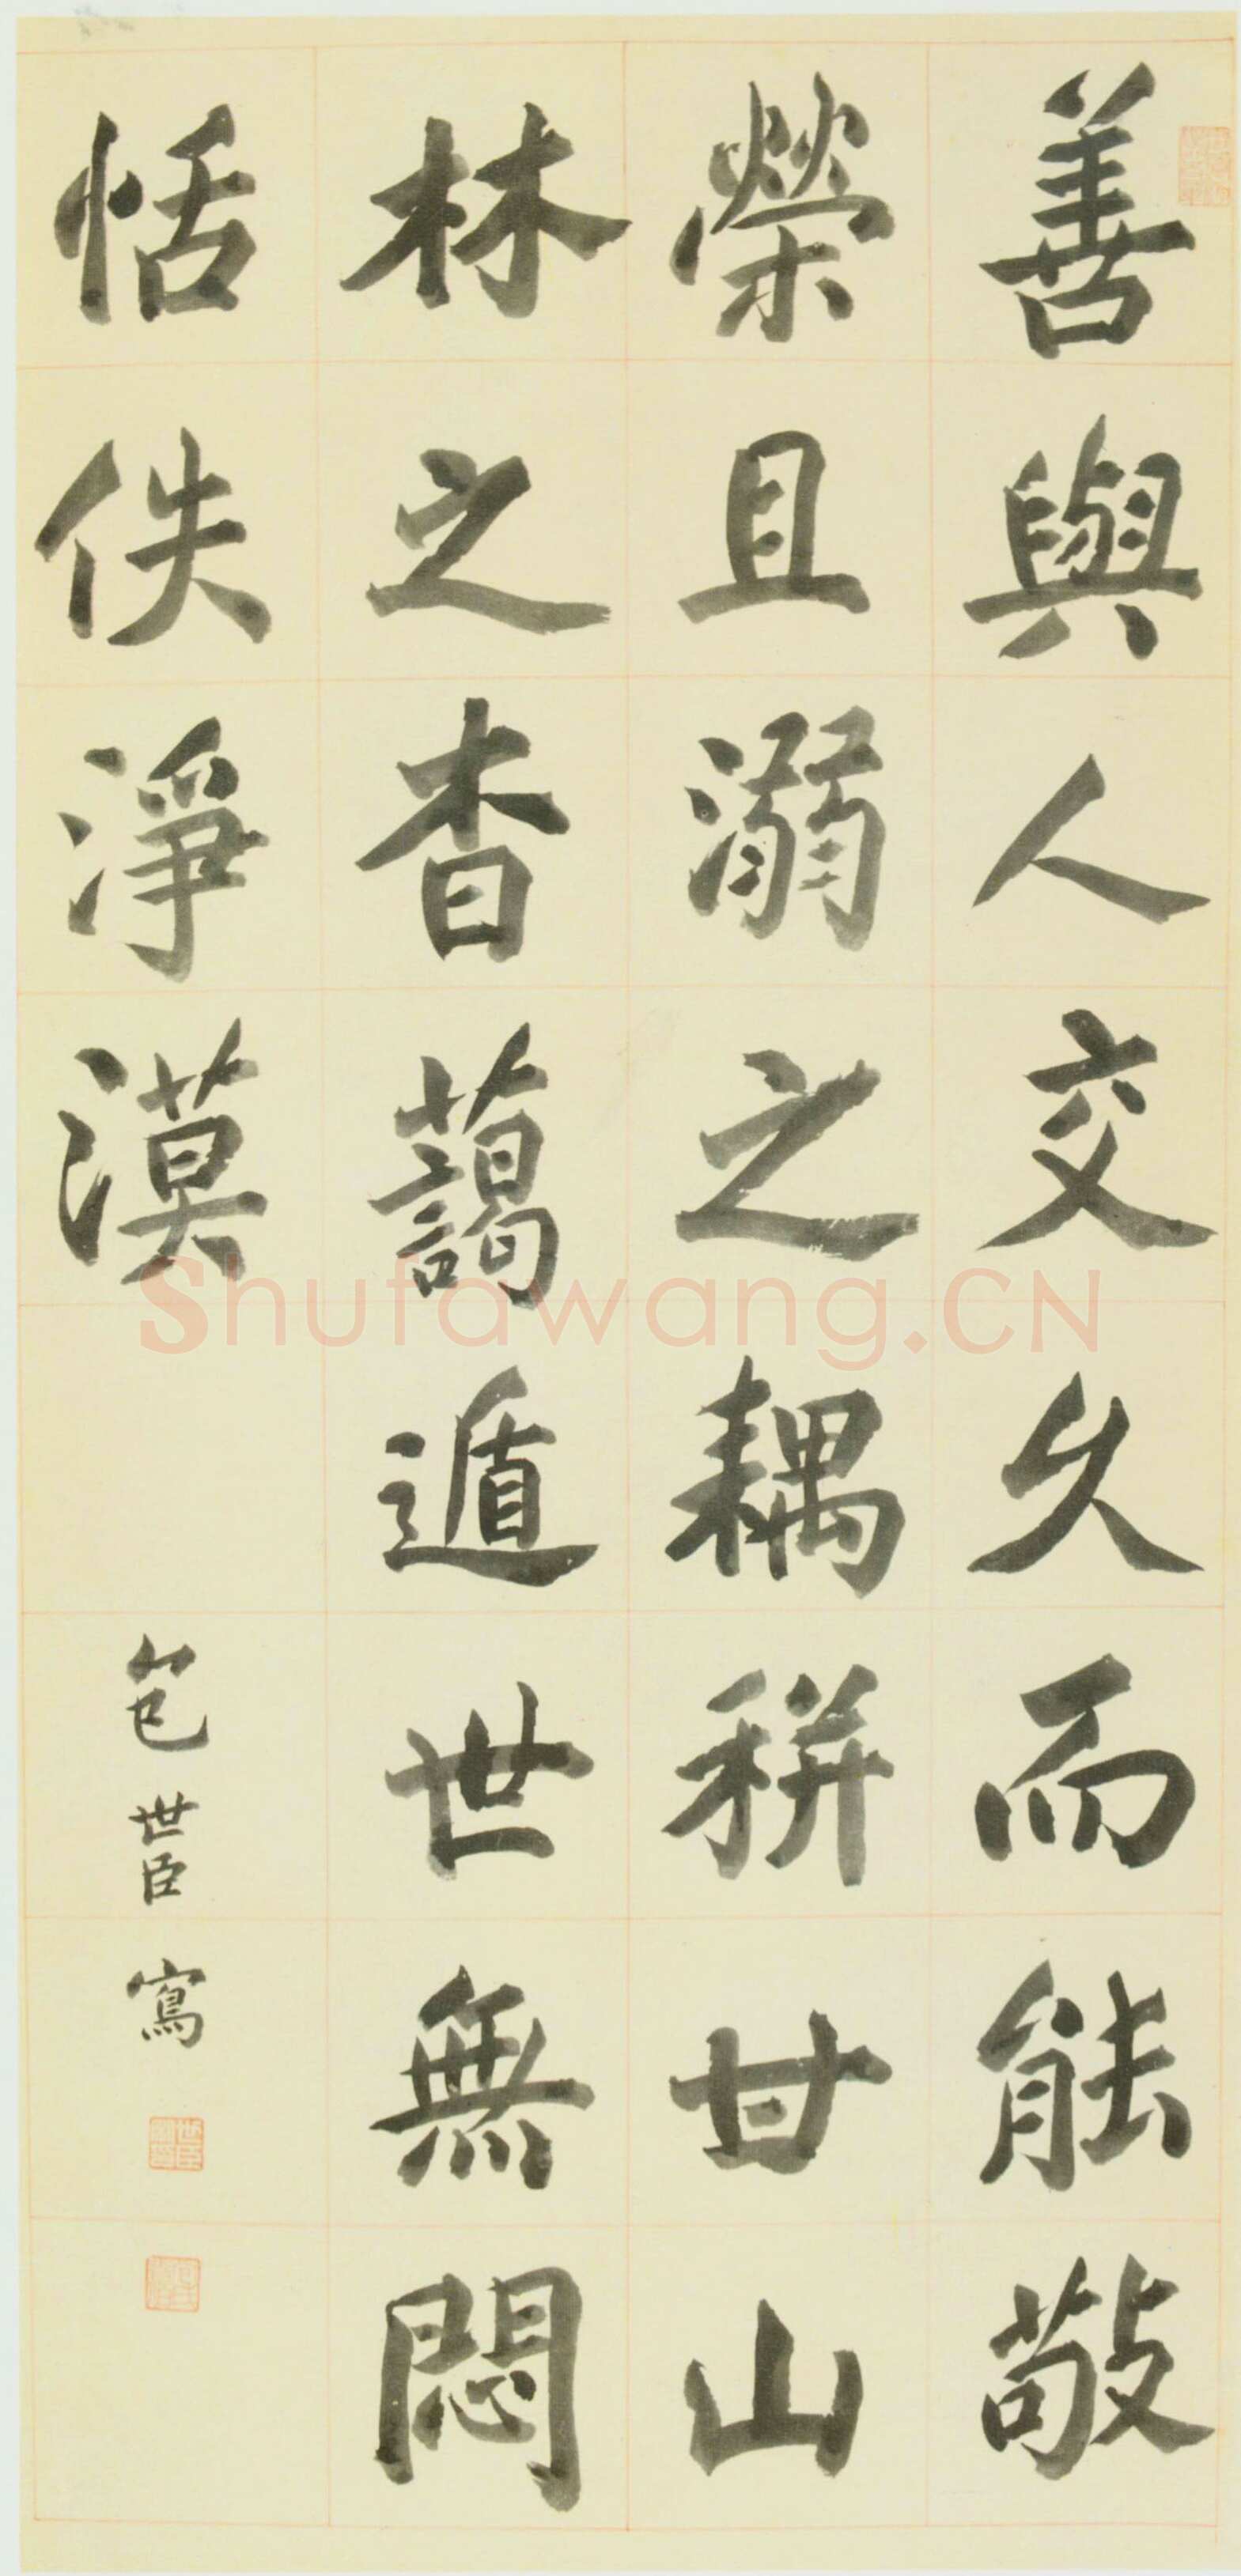 善與人交久而能敬
榮且溺之耦耕甘山
林之杳藹遁世無悶
恬佚淨漠
包世臣寫
Shufawang.CN